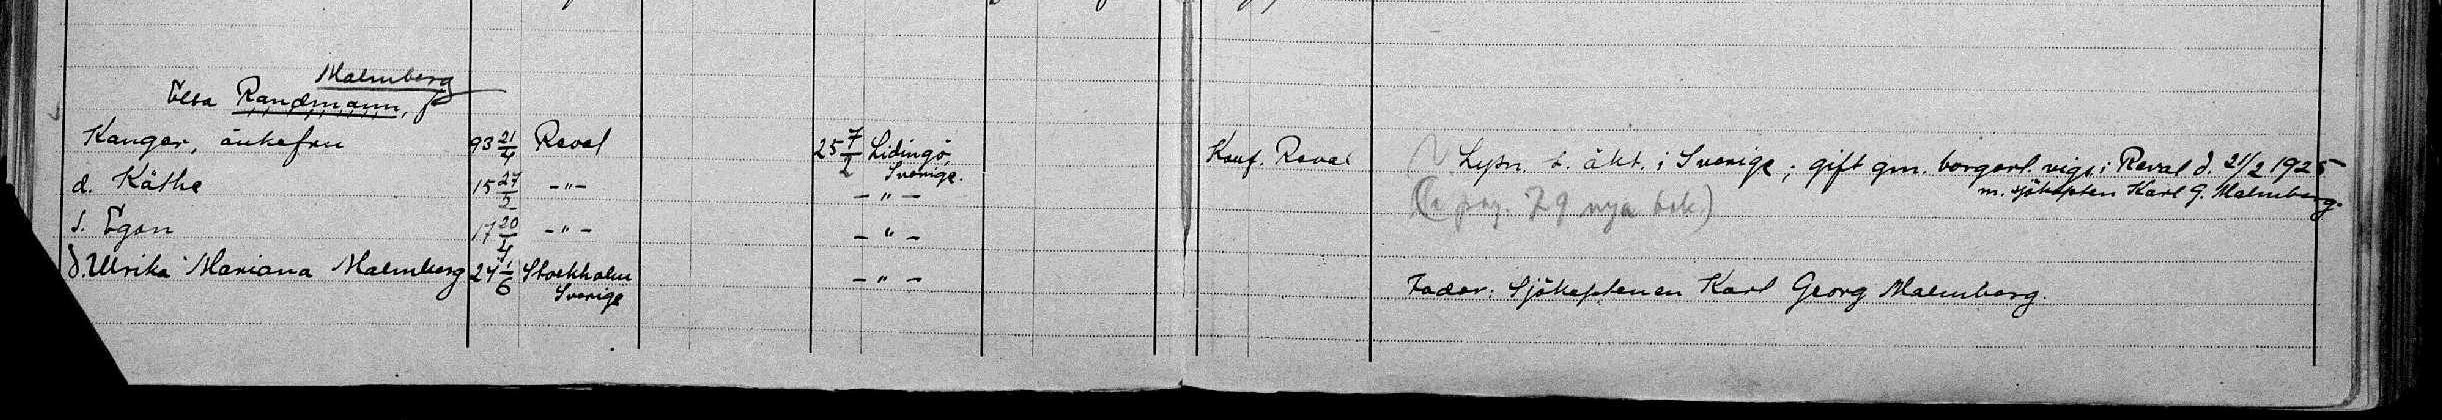 Malmberg
Elsa Randmann, f.
Kanger, änkefru 93 21/4 Reval 25 7/2 Lidingö, Sverige. Konf. Reval Lysn. t. äkt. i Sverige; gift gm. borgerl. vigs. i Reval d. 21/2 1925
m. sjökapten Karl G. Malmberg.
d. Käthe 15 27/2 -"- -"- (Se pag. 79 nya bok.)
s. Egon 17 20/4 -"- -"-
d. Ulrika Mariana Malmberg 24 1/6 Stockholm Sverige -"- Fader: Sjökaptenen Karl Georg Malmberg.